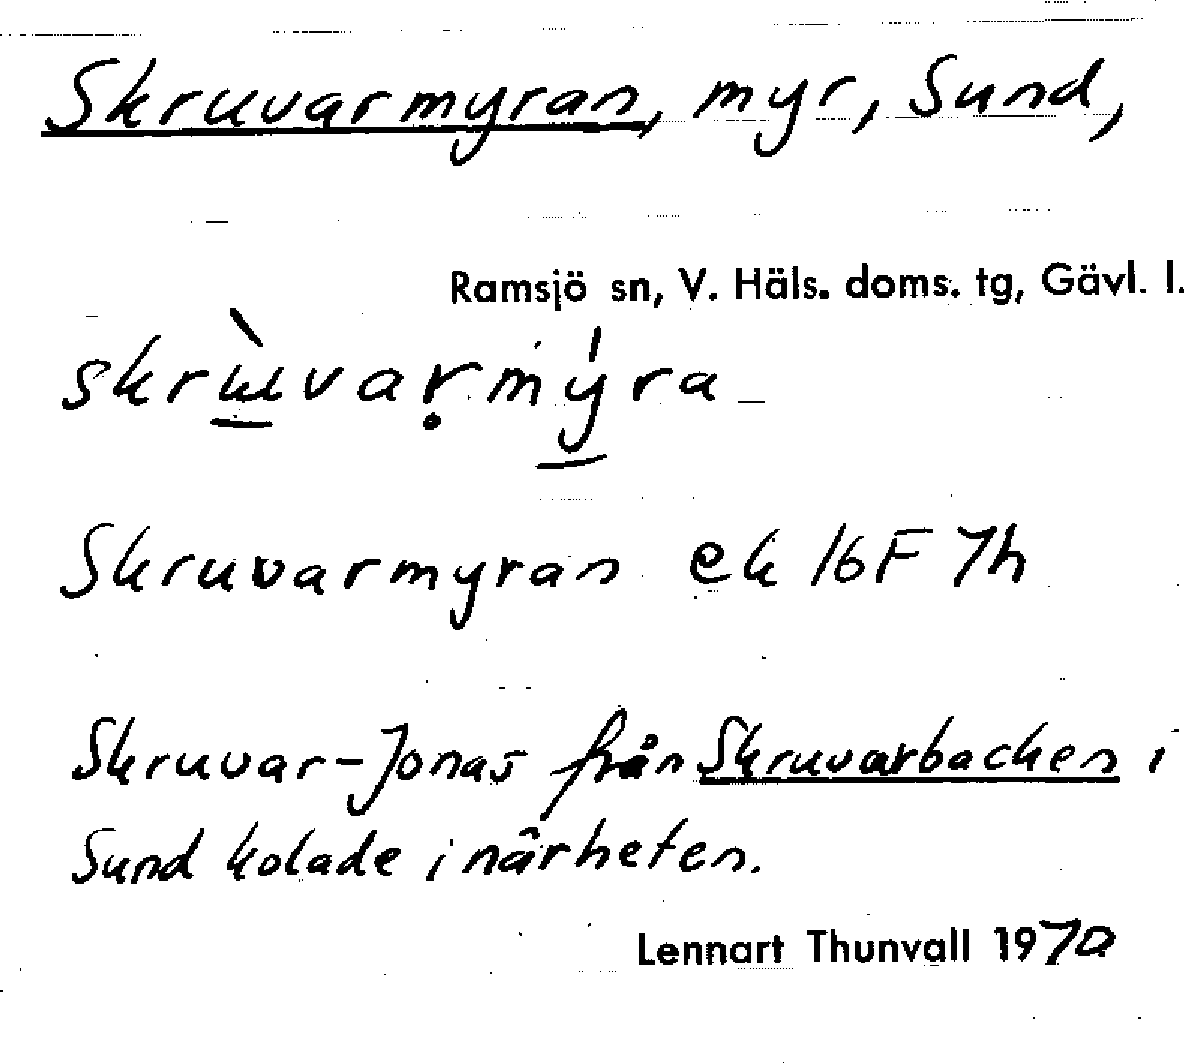 Skruvarmyran, myr, Sund,
Ramsjö sn, V. Häls. doms. tg, Gävl. l.
skrùvaṛmýra
Skruvarmyran ek 16F 7h
Skruvar-Jonas från Skruvarbacken i
Sund kolade i närheten.
Lennart Thunvall 1970